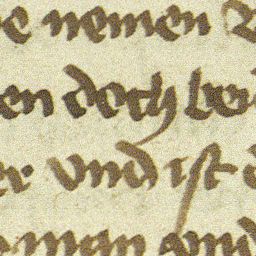 nemen
en doch ber
er vnd ist
man vnd